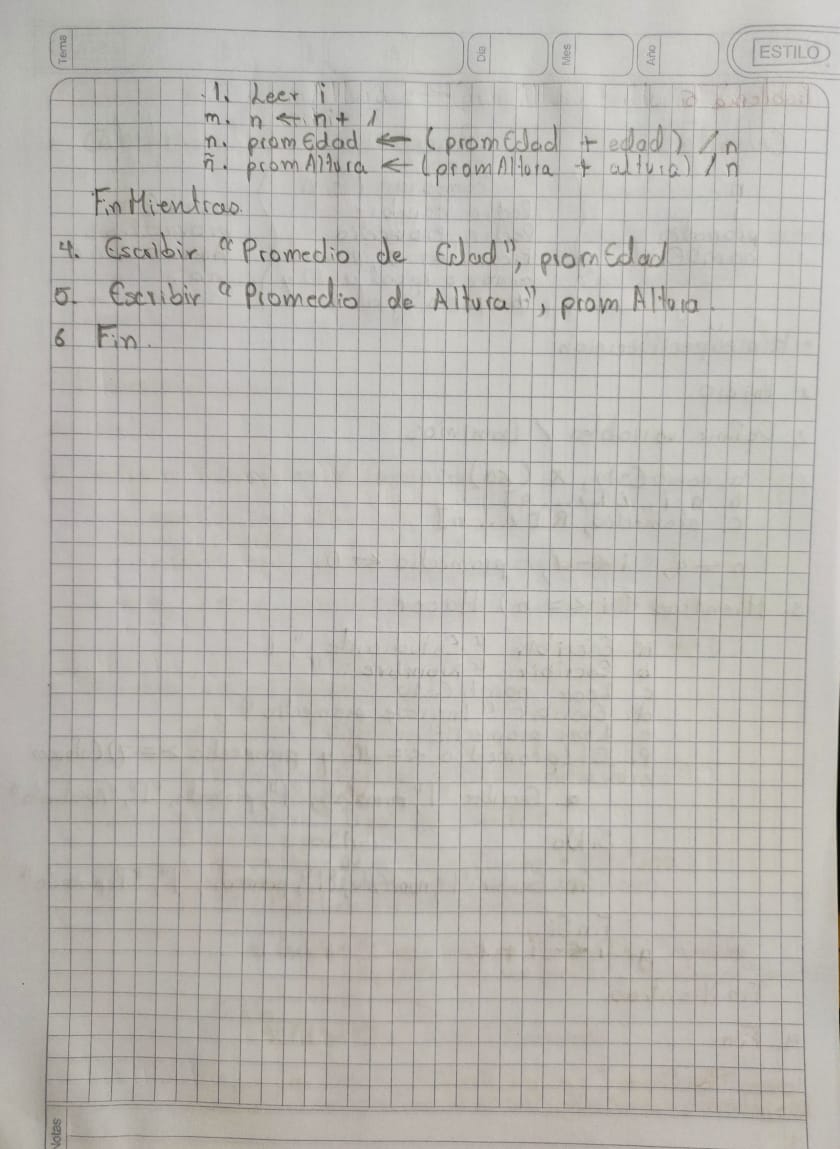 Tema
Día
Mes
Año
ESTILO
l. Leer i
m. n ← n + 1
n. promEdad ← (promEdad + edad) / n
ñ. promAltura ← (promAltura + altura) / n
FinMientras.
4. Escribir "Promedio de Edad", promEdad
5. Escribir "Promedio de Altura", promAltura.
6 Fin.
Notas